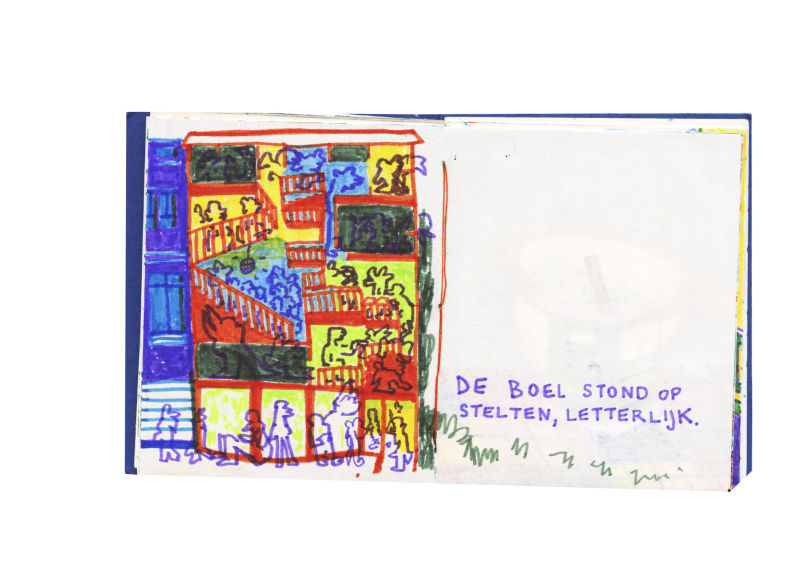 DE BOEL STOND OP
STELTEN, LETTERLIJK.